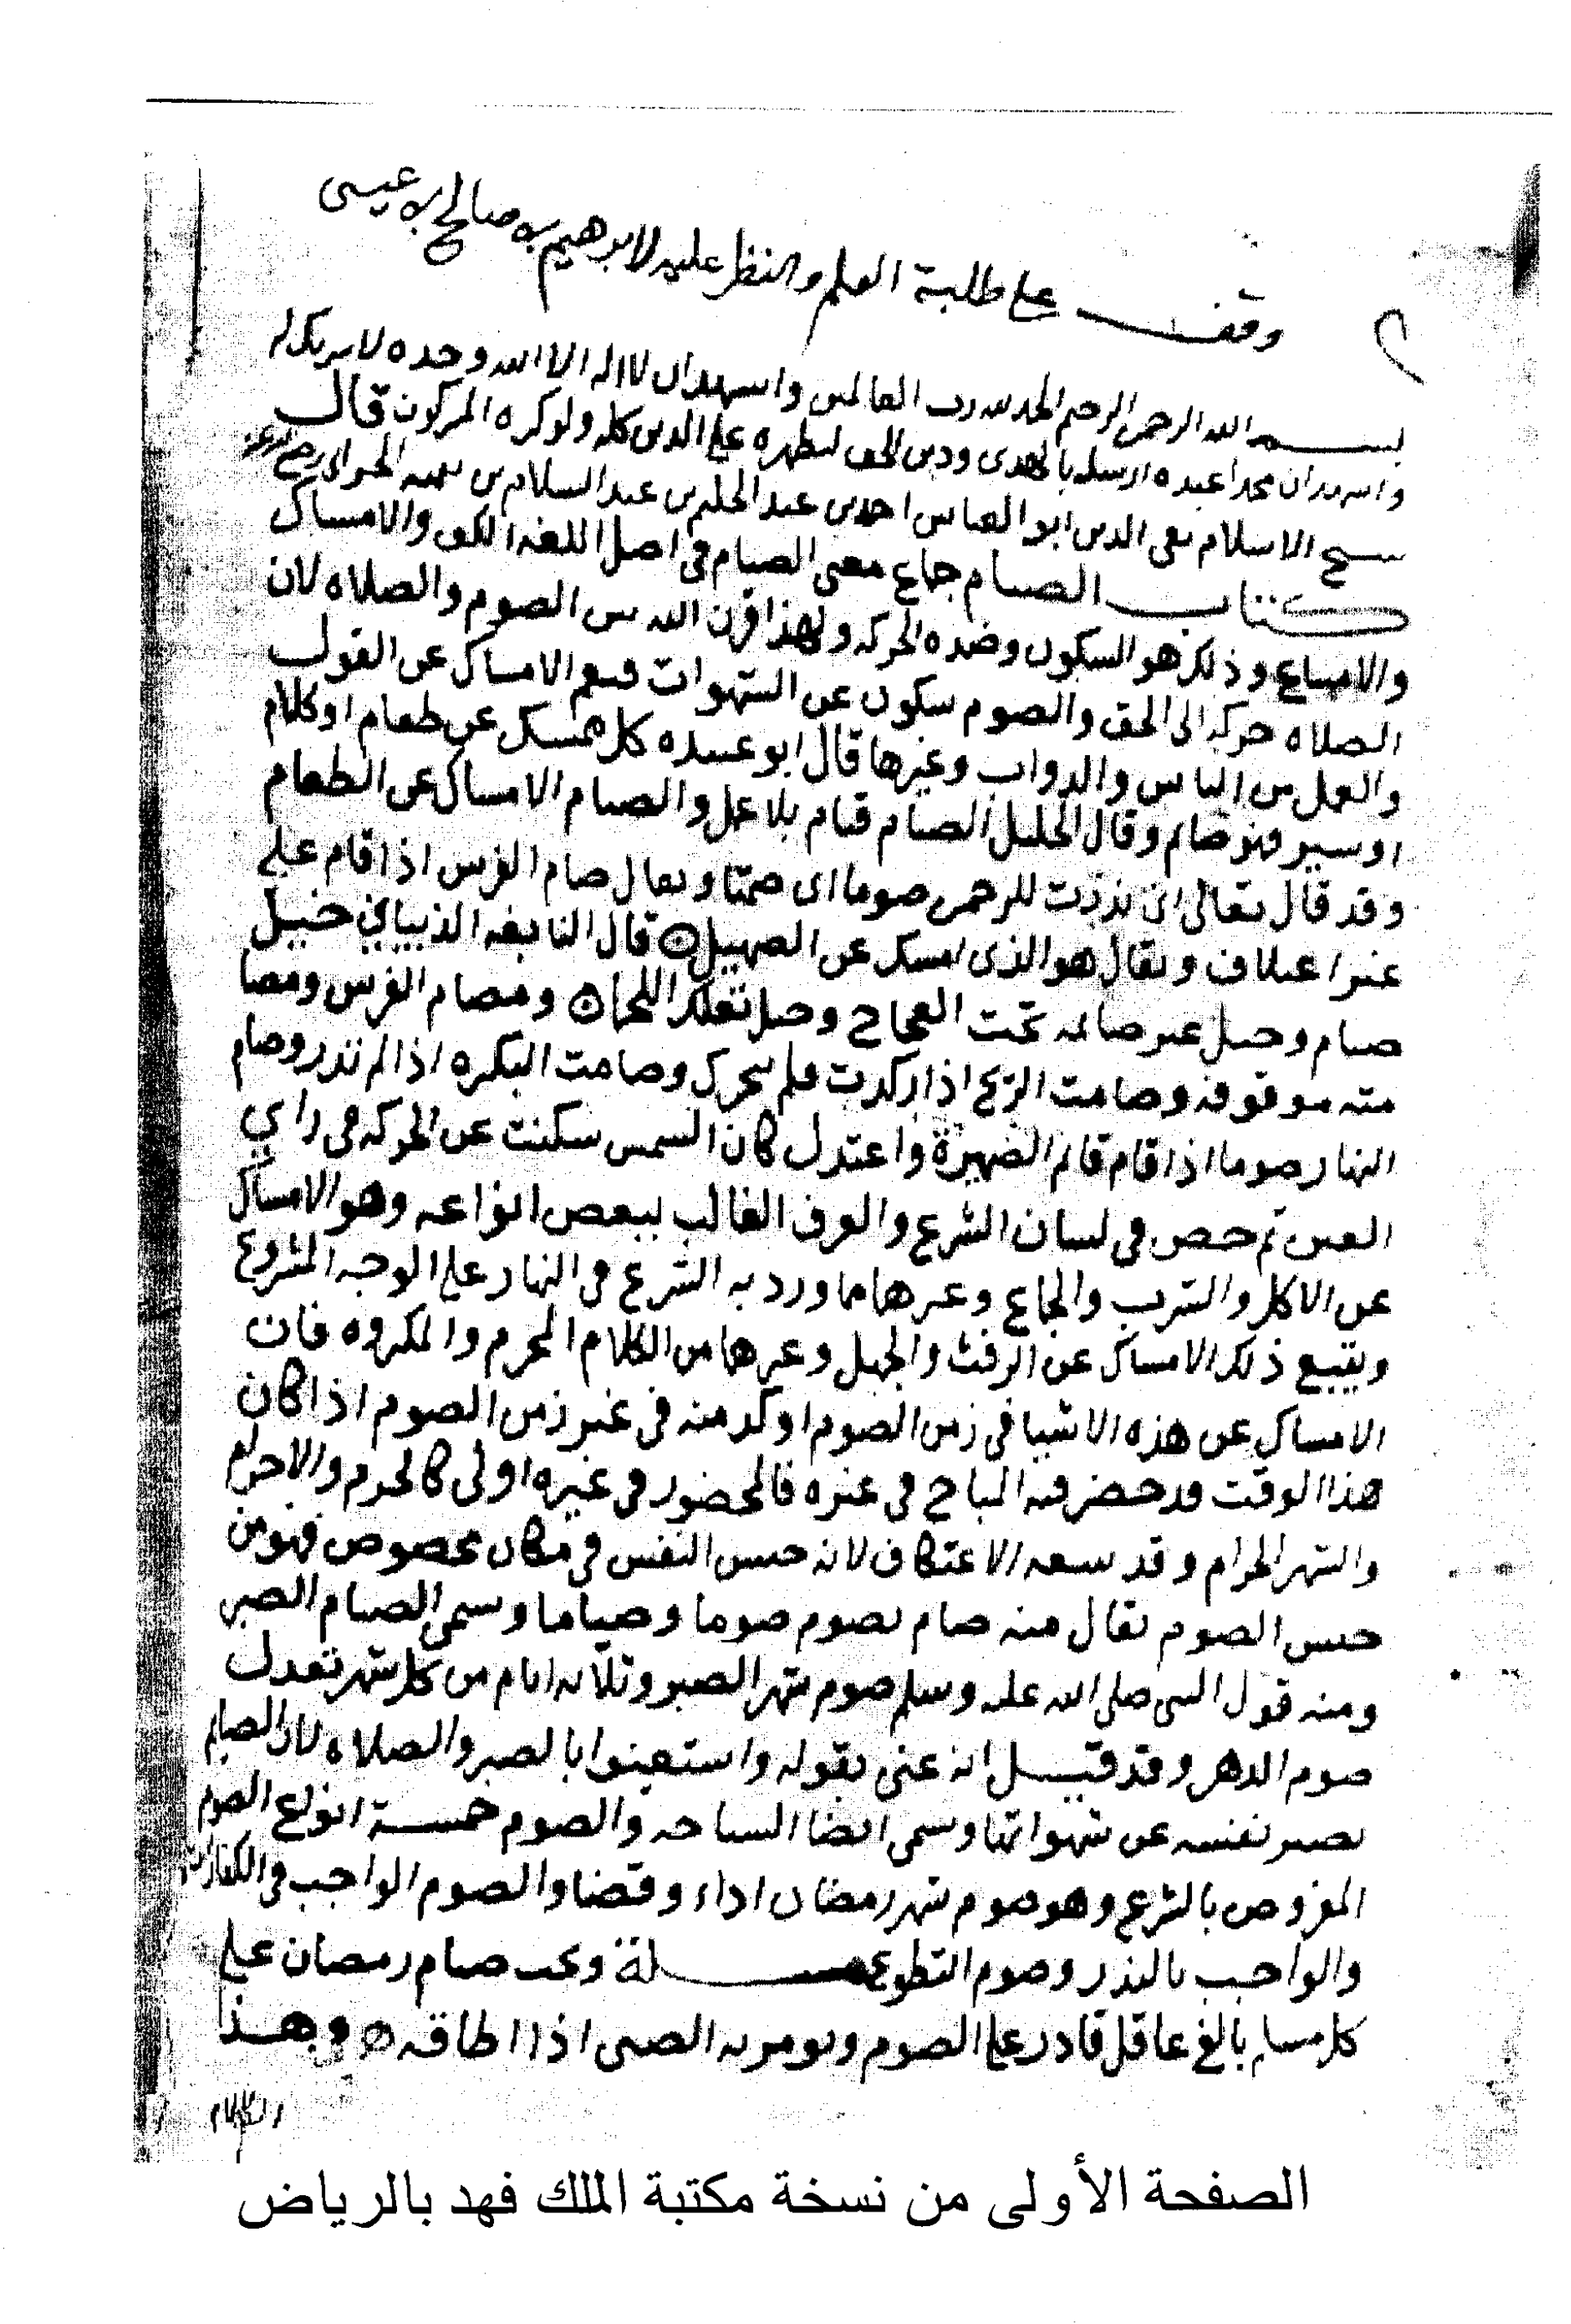 وقف على طلبة العلم والنظر عليه لابرهيم بن صالح بن عيسى
بسم الله الرحمن الرحيم الحمد لله رب العالمين واشهد ان لا اله الا الله وحده لا شريك له
واشهد ان محمدا عبده ارسله بالهدى ودين الحق ليظهره على الدين كله ولو كره المشركون قال
شيخ الاسلام تقي الدين ابو العباس احمد بن عبد الحليم بن عبد السلام بن تيميه الحراني رضي الله عنه
كتاب الصيام جماع معنى الصيام في اصل اللغه الكف والامساك
والامتناع وذلك هو السكون وضده الحركه ولهذا قرن الله بين الصوم والصلاه لان
الصلاه حركه الى الحق والصوم سكون عن الشهوات فيعم الامساك عن القول
والعمل من الناس والدواب وغيرها قال ابو عبيده كل ممسك عن طعام او كلام
او سير فهو صايم وقال الخليل الصيام قيام بلا عمل والصيام الامساك عن الطعام
وقد قال تعالى اني نذرت للرحمن صوما اي صمتا ويقال صام الفرس اذا قام على
غير اعتلاف ويقال هو الذي امسك عن الصهيل ۞ قال النابغه الذبياني خيل
صيام وخيل غير صائمه تحت العجاج وخيل تعلك اللجما ۞ ومصام الفرس ومصا
مته موقوفه وصامت الريح اذا ركدت فلم تتحرك وصامت البكره اذا لم تدر وصام
النهار صوما اذا قام قائم الضهيرة واعتدل كان الشمس سكنت عن الحركه في راي
العين ثم خص في لسان الشرع والعرف الغالب ببعض انواعه وهو الامساك
عن الاكل والشرب والجماع وغيرها مما ورد به الشرع في النهار على الوجه المشروع
ويتبع ذلك الامساك عن الرفث والجهل وغيرها من الكلام المحرم والمكروه فان
الامساك عن هذه الاشيا في زمن الصوم اوكد منه في غير زمن الصوم اذا كان
هذا الوقت قد حضر فيه المباح في غيره فالمحضور في غيره اولى كالحرم والاحرام
والشهر الحرام وقد يتبعه الاعتكاف لانه حبس النفس في مكان مخصوص فهو من
جنس الصوم يقال منه صام يصوم صوما وصياما وسمي الصيام الصبر
ومنه قول النبي صلى الله عليه وسلم صوم شهر الصبر وثلاثه ايام من كل شهر تعدل
صوم الدهر وقد قيل انه عنى بقوله واستعينوا بالصبر والصلاه لان الصايم
يصبر نفسه عن شهواتها وسمي ايضا السياحه والصوم خمسة انواع الصوم
المفروض بالشرع وهو صوم شهر رمضان اداء وقضا والصوم الواجب في الكفارات
والواجب بالنذر وصوم التطوع مسئلة ويجب صيام رمضان على
كل مسلم بالغ عاقل قادر على الصوم ويومر به الصبي اذا اطاقه ۞ وهذا
الكلام
الصفحة الأولى من نسخة مكتبة الملك فهد بالرياض